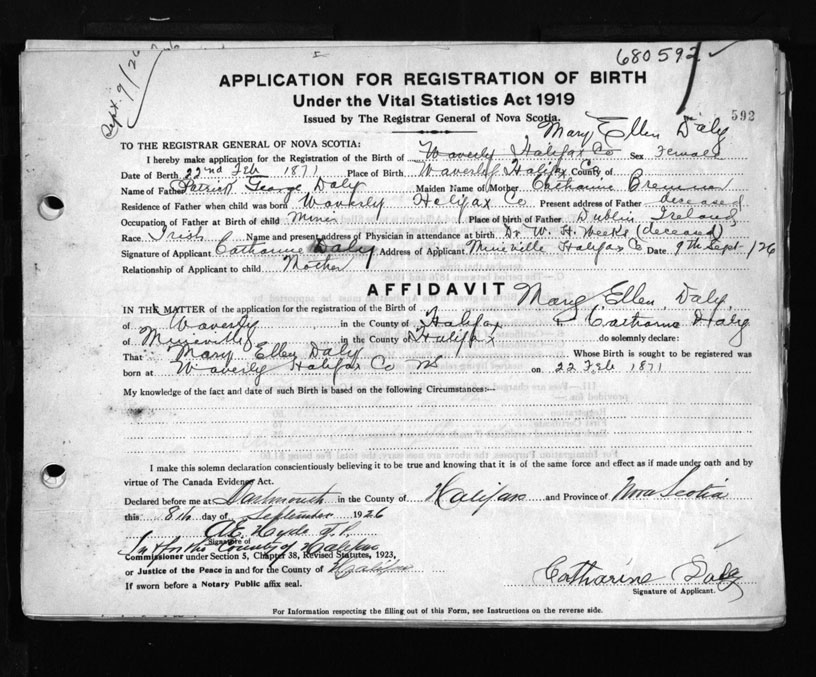 680592
Sept. 9/26
APPLICATION FOR REGISTRATION OF BIRTH
Under the Vital Statistics Act 1919
Issued by The Registrar General of Nova Scotia.
592
Mary Ellen Daly
TO THE REGISTRAR GENERAL OF NOVA SCOTIA:
I hereby make application for the Registration of the Birth of Waverly Halifax Co Sex Female
Date of Birth 22nd Feb 1871 Place of Birth Waverly Halifax Co County of
Name of Father Patrick George Daly Maiden Name of Mother Catharine Brennan
Residence of Father when child was born Waverly Halifax Co Present address of Father deceased
Occupation of Father at Birth of child Miner Place of birth of Father Dublin Ireland
Race Irish Name and present address of Physician in attendance at birth Dr W. H. Weeks (deceased)
Signature of Applicant Catharine Daly Address of Applicant Mineville Halifax Co Date 9th Sept /26
Relationship of Applicant to child Mother
AFFIDAVIT
IN THE MATTER of the application for the registration of Birth of Mary Ellen Daly
of Waverly in the County of Halifax I, Catharine Daly
of Mineville in the County of Halifax do solemnly declare:
That Mary Ellen Daly Whose Birth is sought to be registered was
born at Waverly Halifax Co NS on 22 Feb 1871
My knowledge of the fact and date of such Birth is based on the following Circumstances:—
I make this solemn declaration conscientiously believing it to be true and knowing that it is of the same force and effect as if made under oath and by
virtue of The Canada Evidence Act.
Declared before me at Dartmouth in the County of Halifax and Province of Nova Scotia
this 8th day of September 1926
A.E. Hyde J.P.
Signature of
In & for the County of Halifax
Commissioner under Section 5, Chapter 38, Revised Statutes, 1923,
or Justice of the Peace in and for the County of Halifax
If sworn before a Notary Public affix seal.
Catharine Daly
Signature of Applicant.
For Information respecting the filling out of this Form, see Instructions on the reverse side.